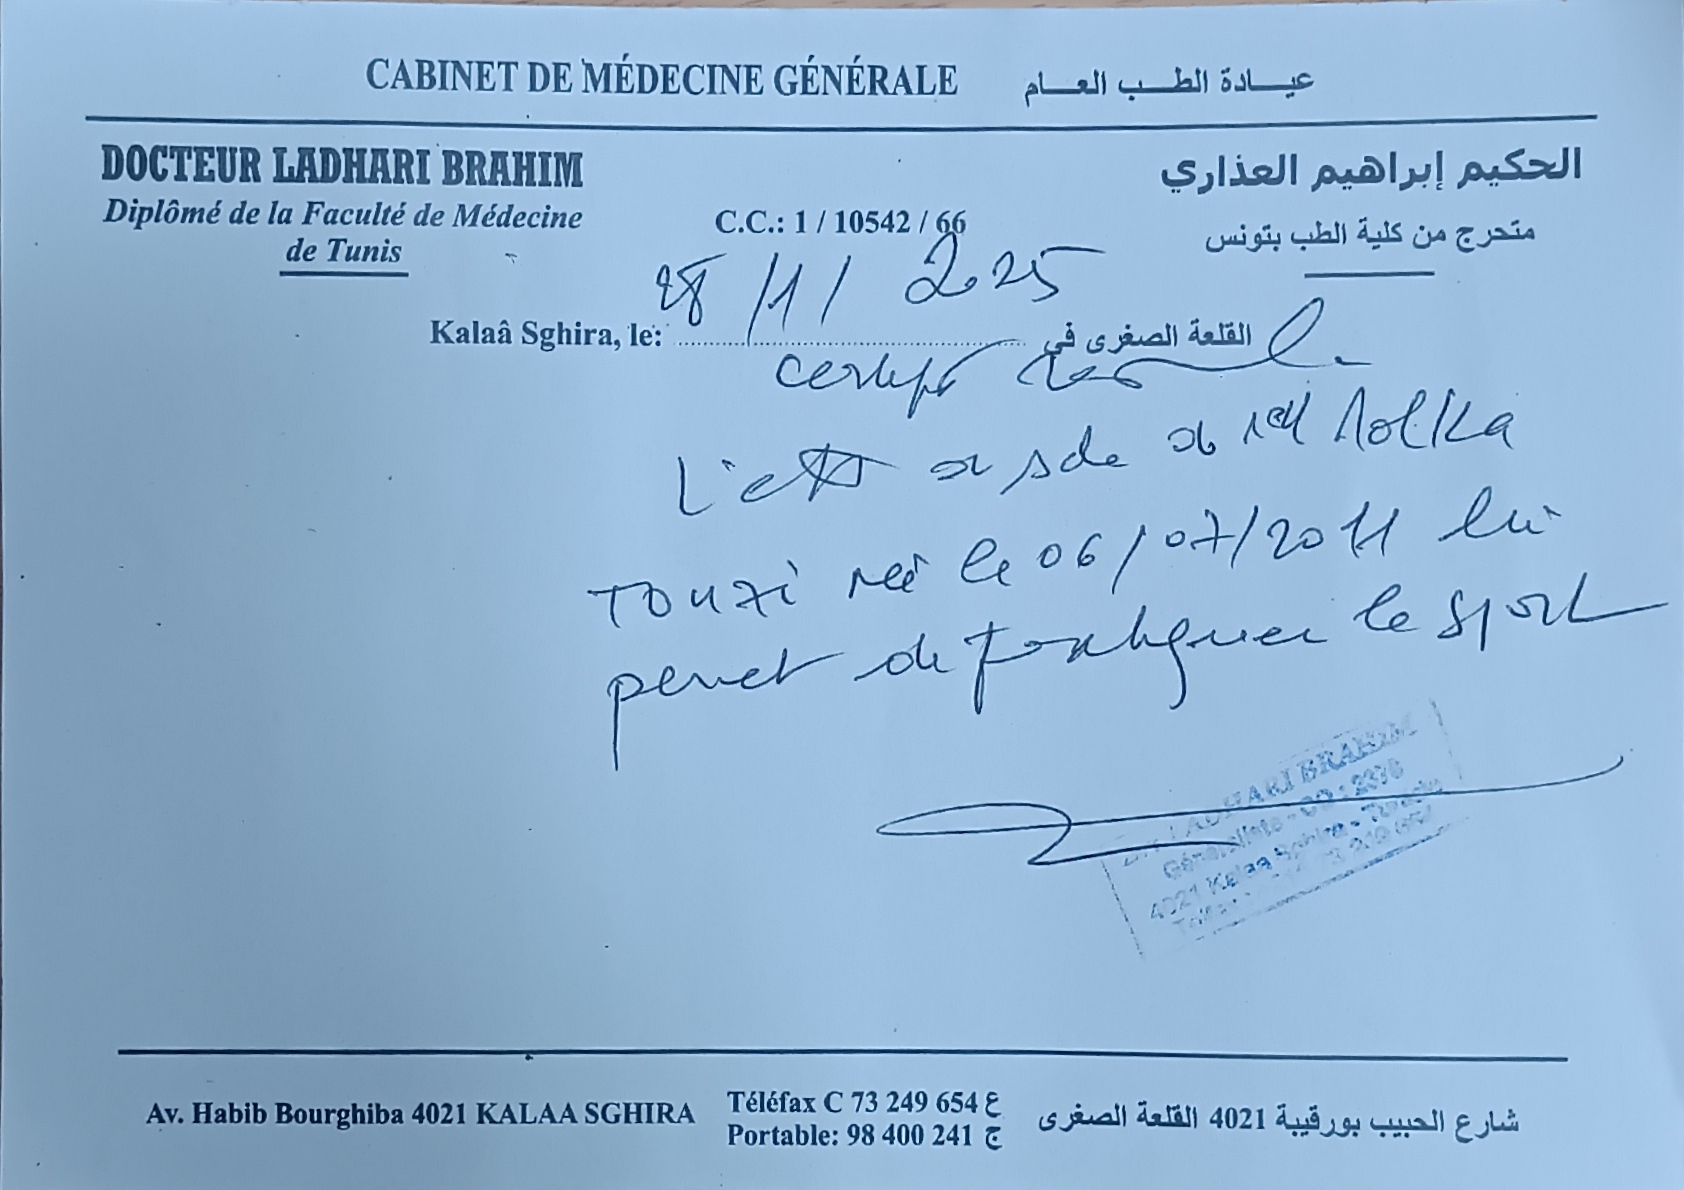 CABINET DE MÉDECINE GÉNÉRALE عيادة الطب العام
DOCTEUR LADHARI BRAHIM الحكيم إبراهيم العذاري
Diplômé de la Faculté de Médecine C.C.: 1 / 10542 / 66 متحرج من كلية الطب بتونس
de Tunis
28/1/2025
Kalaâ Sghira, le: القلعة الصغرى في
certifie
L'état de de
TOUZI né le 06/07/2011 lui
permet de pratiquer le sport
LADHARI BRAHIM
Généraliste
4021 Kalaa Sghira
Av. Habib Bourghiba 4021 KALAA SGHIRA Téléfax C 73 249 654 ع شارع الحبيب بورقيبة 4021 القلعة الصغرى
Portable: 98 400 241 ج